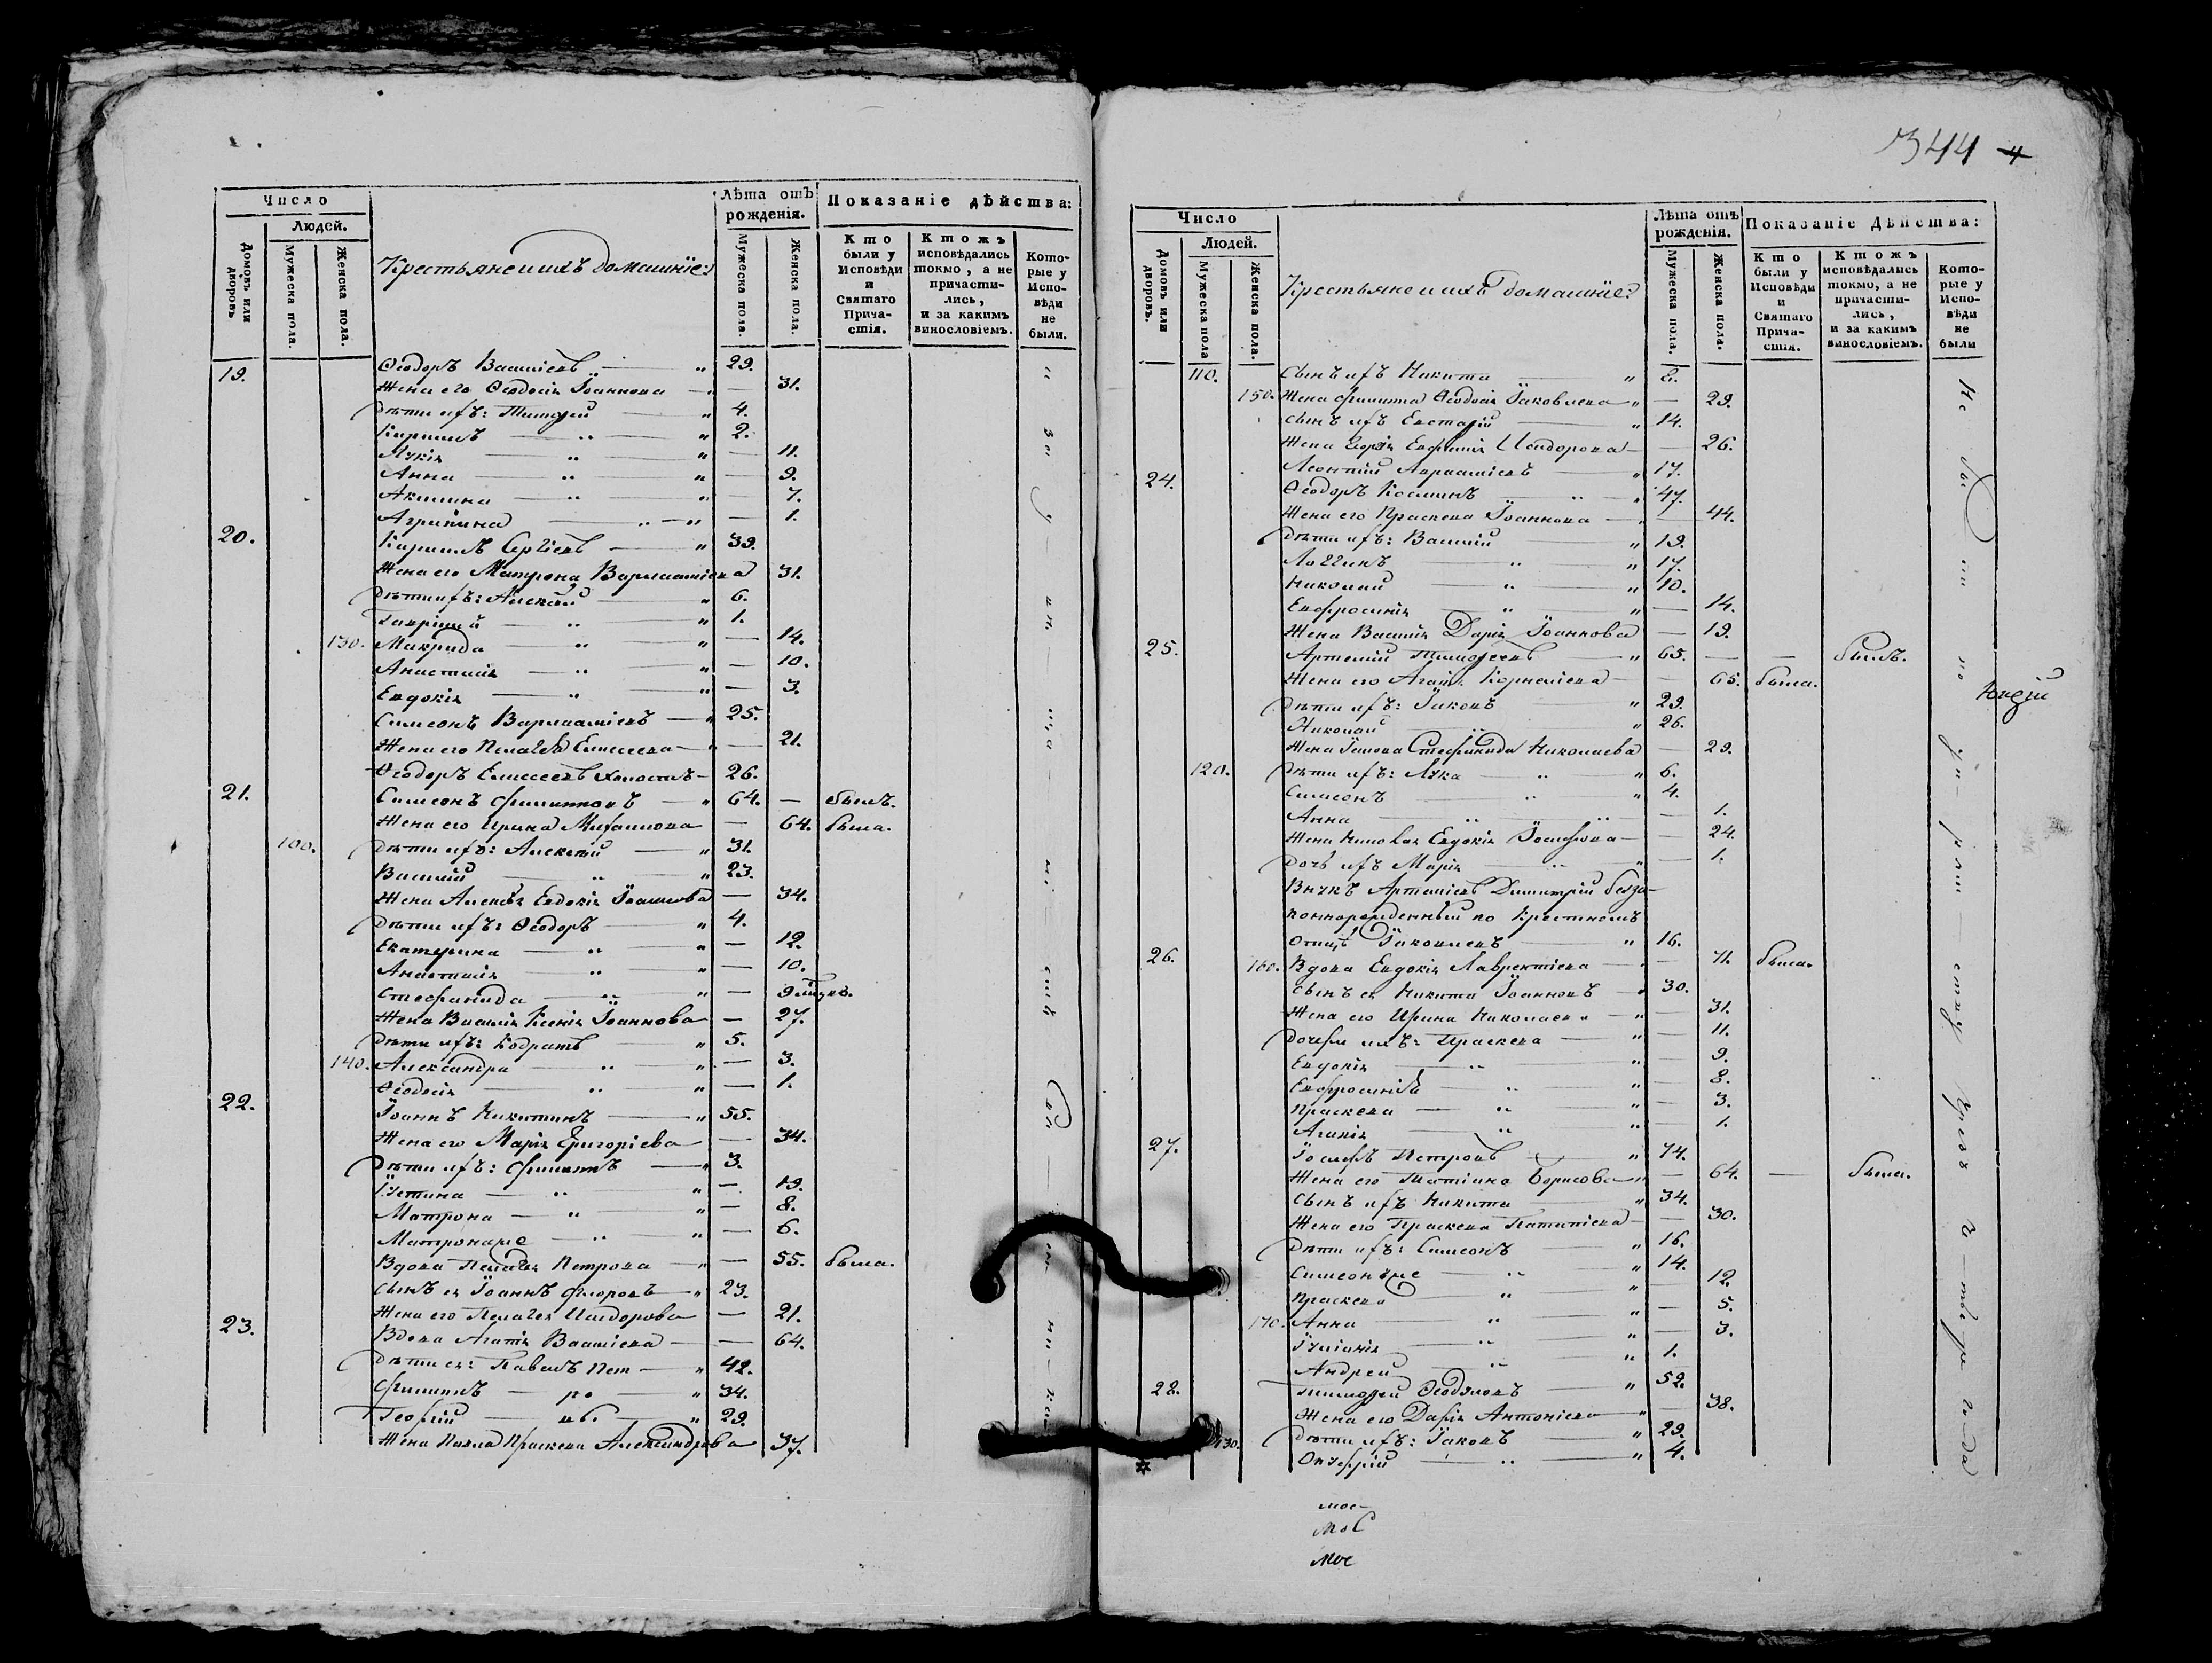 344 4
Число
Людей.
Домовъ или дворовъ
Мужеска пола.
Женска пола.
Крестьяне и ихъ домашніе:
Лѣта отъ рожденія.
Мужеска пола.
Женска пола.
Показаніе дѣйства:
Кто были у Исповѣди и Святаго Прича-стія.
Ктожъ исповѣдались токмо, а не причасти-лись, и за какимъ винословіемъ.
Кото-рые у Испо-вѣди не были.
19. Ѳеодоръ Василіевъ — " 29.
Жена его Ѳеодосія Іоаннова — 31.
Дѣти ихъ: Тимоѳей — " 4.
Кириллъ — " 2.
Лукія — " — 11.
Анна — " — 9.
Акилина — " — 7.
Агрипина — " — 1.
20. Кириллъ Сергіевъ — " 39.
Жена его Матрона Варлааміева 31.
Дѣти ихъ: Алексѣй — " 6.
Гавріилъ — " 1.
130. Макрида — " — 14.
Анастасія — " — 10.
Евдокія — " — 3.
Симеонъ Варлааміевъ — " 25.
Жена его Пелагея Елисеева — 21.
Ѳеодоръ Елисеевъ холостъ — 26.
21. Симеонъ Филипповъ — " 64. — былъ.
Жена его Ирина Михаилова — 64. была.
100. Дѣти ихъ: Алексѣй — " 31.
Василій — " 23.
Жена Алексѣя Евдокія — 34.
Дѣти ихъ: Ѳеодоръ — " 4.
Екатерина — " — 12.
Анастасія — " — 10.
Стефанида — " — 9
Жена Василія Ксенія Іоаннова — 27.
Дѣти ихъ: Кодратъ — " 5.
140. Александра — " — 3.
Ѳеодосія — " — 1.
22. Іоаннъ Никитинъ — " 55.
Жена его Марія Григоріева — 34.
Дѣти ихъ: Филиппъ — " 3.
Іустина — " — 19.
Матрона — " — 8.
Матронаже — " — 6.
Вдова Пелагея Петрова — 55. была.
Сынъ ея Іоаннъ Флоровъ — " 23.
Жена его Пелагея Исидорова — 21.
23. Вдова Агапія Василіева — 64.
Дѣти ея: Павелъ Пет — " 42.
Филиппъ — ро — " 34.
Георгій — вы — " 29.
Жена Павла Праскева Александрова 37.
Число
Людей.
Домовъ или дворовъ.
Мужеска пола
Женска пола.
Крестьяне и ихъ домашніе:
Лѣта отъ рожденія.
Мужеска пола.
Женска пола.
Показаніе Дѣйства:
Кто были у Исповѣди и Святаго Прича-стія.
Ктожъ исповѣдались токмо, а не причасти-лись, и за какимъ винословіемъ.
Кото-рые у Испо-вѣди не были
110. Сынъ ихъ Никита — " 2.
150. Жена Филиппа Ѳеодосія Іаковлева " — 29.
Сынъ ихъ Евстафій — " 14.
Жена Георгія Евфимія Исидорова — 26.
Леонтій Авраамиевъ — " 17.
24. Ѳеодоръ Косминъ — " 47.
Жена его Праскева Іоаннова — 44.
Дѣти ихъ: Василій — " 19.
Логгинъ — " 17.
Николай — " 10.
Евфросинія — " — 14.
Жена Василія Дарія Іоаннова — 19.
25. Артемій Тимоѳеевъ — " 65. — — былъ.
Жена его Агапія Корниліева — 65. была.
Дѣти ихъ: Іаковъ — " 29.
Николай " 26.
Жена Іакова Стефанида Николаева — 29.
120. Дѣти ихъ: Лука — " 6.
Симеонъ " 4.
Анна — " — 1.
Жена Николая Евдокія Іосифова — 24.
Дочь ихъ Марія — " — 1.
Внукъ Артеміевъ Димитрій безза-
коннорожденный по Крестномъ
Отцѣ Іаковлевъ — " 16.
26. 160. Вдова Евдокія Лаврентіева — 71. была.
Сынъ ея Никита Іоанновъ — 30.
Жена его Ирина Николаева — 31.
Дочери ихъ: Праскева — " — 11.
Евдокія — " — 9.
Евфросинія — " — 8.
Праскева — " — 3.
Агапія — " — 1.
27. Іосифъ Петровъ — " 74.
Жена его Татіана Борисова — 64. — была.
Сынъ ихъ Никита — " 34.
Жена его Праскева — 30.
Дѣти ихъ: Симеонъ — " 16.
Симеонъже — " 14.
Праскева — " — 12.
170. Анна — " — 5.
Іуліанія — " — 3.
Андрей — " 1.
22. Тимоѳей — " 52.
Жена его Дарія Антоніева — " 38.
130. Дѣти ихъ: Іаковъ — " 29.
Онуфрій — " 4.
мое
МоС
мое